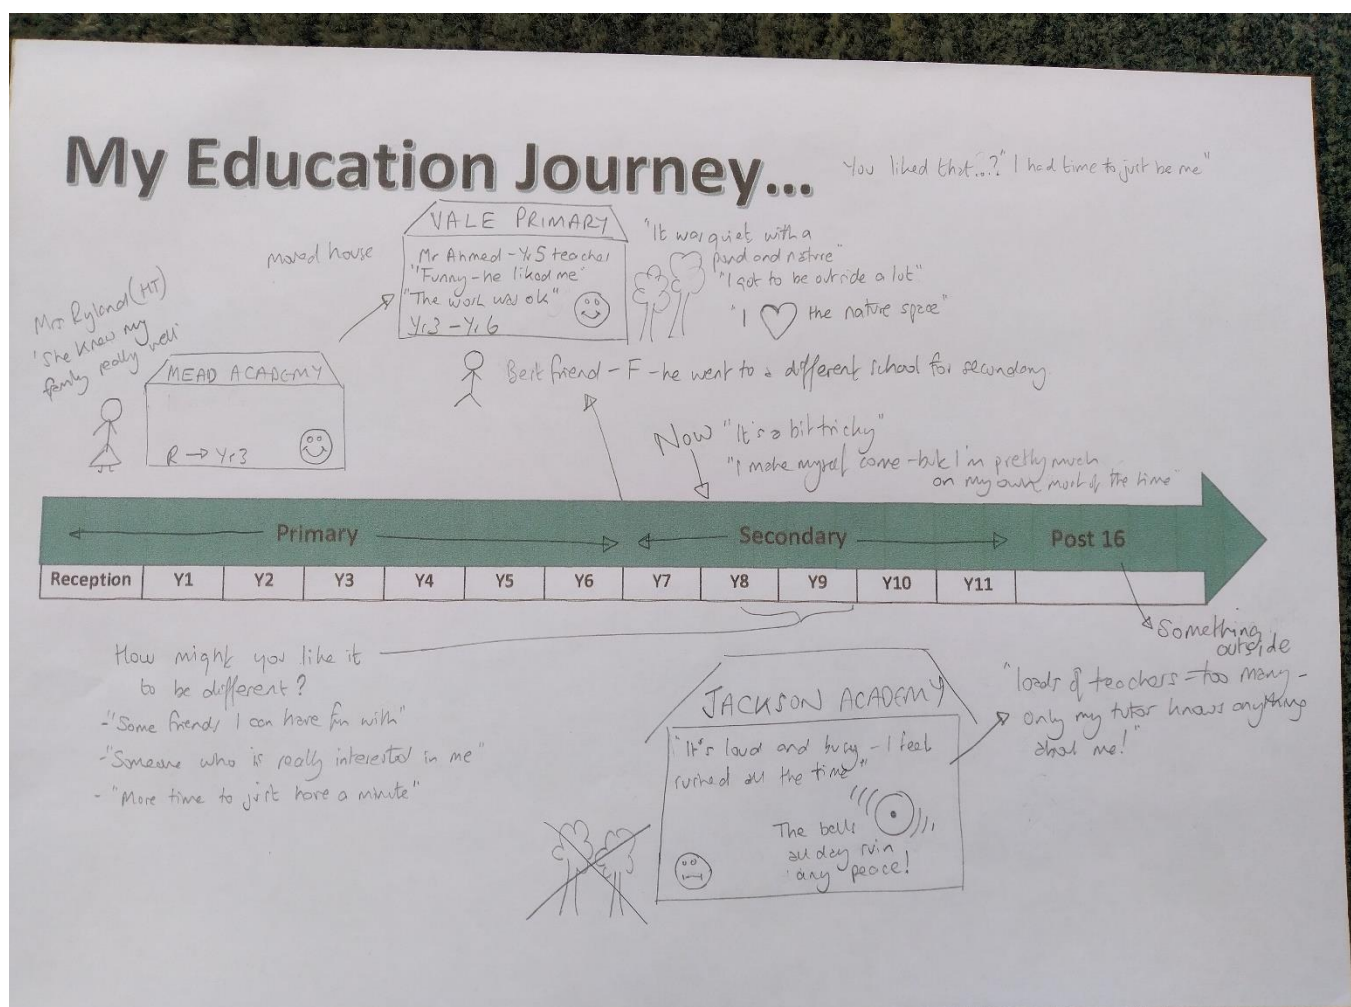 My Education Journey...
You liked that...? "I had time to just be me"
VALE PRIMARY
Mr Ahmed - Yr5 teacher
"Funny - he liked me"
"The work was ok"
Yr3 - Yr6
"It was quiet with a
pond and nature"
"I got to be outside a lot"
"I ♡ the nature space"
moved house
Mrs Ryland (HT)
"She knew my
family really well"
MEAD ACADEMY
R → Yr3
Best friend - F - he went to a different school for secondary
Now "It's a bit tricky"
"I make myself come - but I'm pretty much
on my own most of the time"
Primary
Secondary
Post 16
Reception Y1 Y2 Y3 Y4 Y5 Y6 Y7 Y8 Y9 Y10 Y11
Something
outside
How might you like it
to be different?
- "Some friends I can have fun with"
- "Someone who is really interested in me"
- "More time to just have a minute"
JACKSON ACADEMY
"It's loud and busy - I feel
rushed all the time"
The bells
all day ruin
any peace!
"loads of teachers = too many -
only my tutor knows anything
about me!"